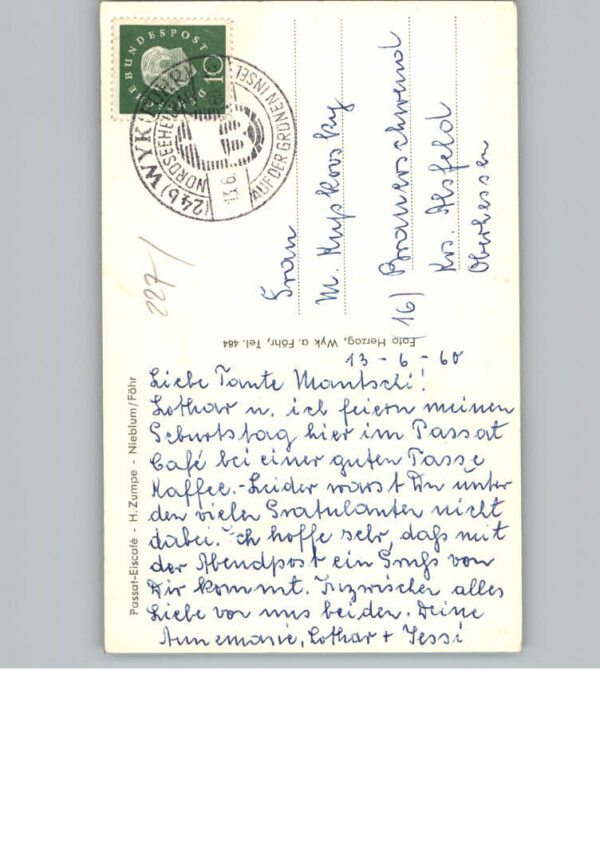 DEUTSCHE BUNDESPOST
10
(24b) WYK
NORDSEEHEIL
AUF DER GRÜNEN INSEL
13.6.
227/
Frau
16) Brauerschwend
Krs. Alsfeld
Oberhessen
Foto Herzog, Wyk a. Föhr, Tel. 484
Passat-Eiscafé - H. Zumpe - Nieblum/Föhr
13 - 6 - 60
Liebe Tante Mantschi!
Lothar u. ich feiern meinen
Geburtstag hier im Passat
Café bei einer guten Tasse
Kaffee.- Leider warst Du unter
den vielen Gratulanten nicht
dabei. Ich hoffe sehr, daß mit
der Abendpost ein Gruß von
Dir kommt. Inzwischen alles
Liebe von uns beiden. Deine
Annemarie, Lothar + Jessi